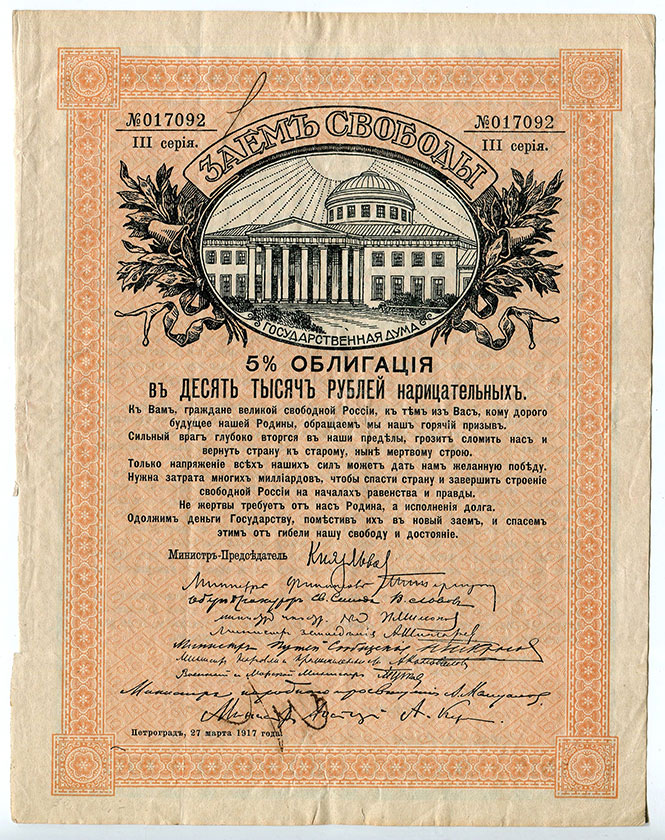 №017092 №017092
III серія. III серія.
ЗАЕМЪ СВОБОДЫ
ГОСУДАРСТВЕННАЯ ДУМА
5% ОБЛИГАЦІЯ
въ ДЕСЯТЬ ТЫСЯЧЪ РУБЛЕЙ нарицательныхъ.
Къ Вамъ, граждане великой свободной Россіи, къ тѣмъ изъ Васъ, кому дорого
будущее нашей Родины, обращаемъ мы нашъ горячій призывъ.
Сильный врагъ глубоко вторгся въ наши предѣлы, грозитъ сломить насъ и
вернуть страну къ старому, нынѣ мертвому строю.
Только напряженіе всѣхъ нашихъ силъ можетъ дать намъ желанную побѣду.
Нужна затрата многихъ милліардовъ, чтобы спасти страну и завершить строеніе
свободной Россіи на началахъ равенства и правды.
Не жертвы требуетъ отъ насъ Родина, а исполненія долга.
Одолжимъ деньги Государству, помѣстивъ ихъ въ новый заемъ, и спасемъ
этимъ отъ гибели нашу свободу и достояніе.
Министръ-Предсѣдатель Князь Львов
Министръ Финансовъ
Оберъ-Прокуроръ Св. Синода В. Львовъ
Министръ земледѣлія А. Шингарев
Министръ Путей Сообщенія Н. Некрасов
Министр Торговли и Промышленности А. Коновалов
Военный и Морской Министръ
Министръ народного просвѣщенія А. Мануйлов
Министръ Юстиціи А. Кер
Петроградъ, 27 марта 1917 года.